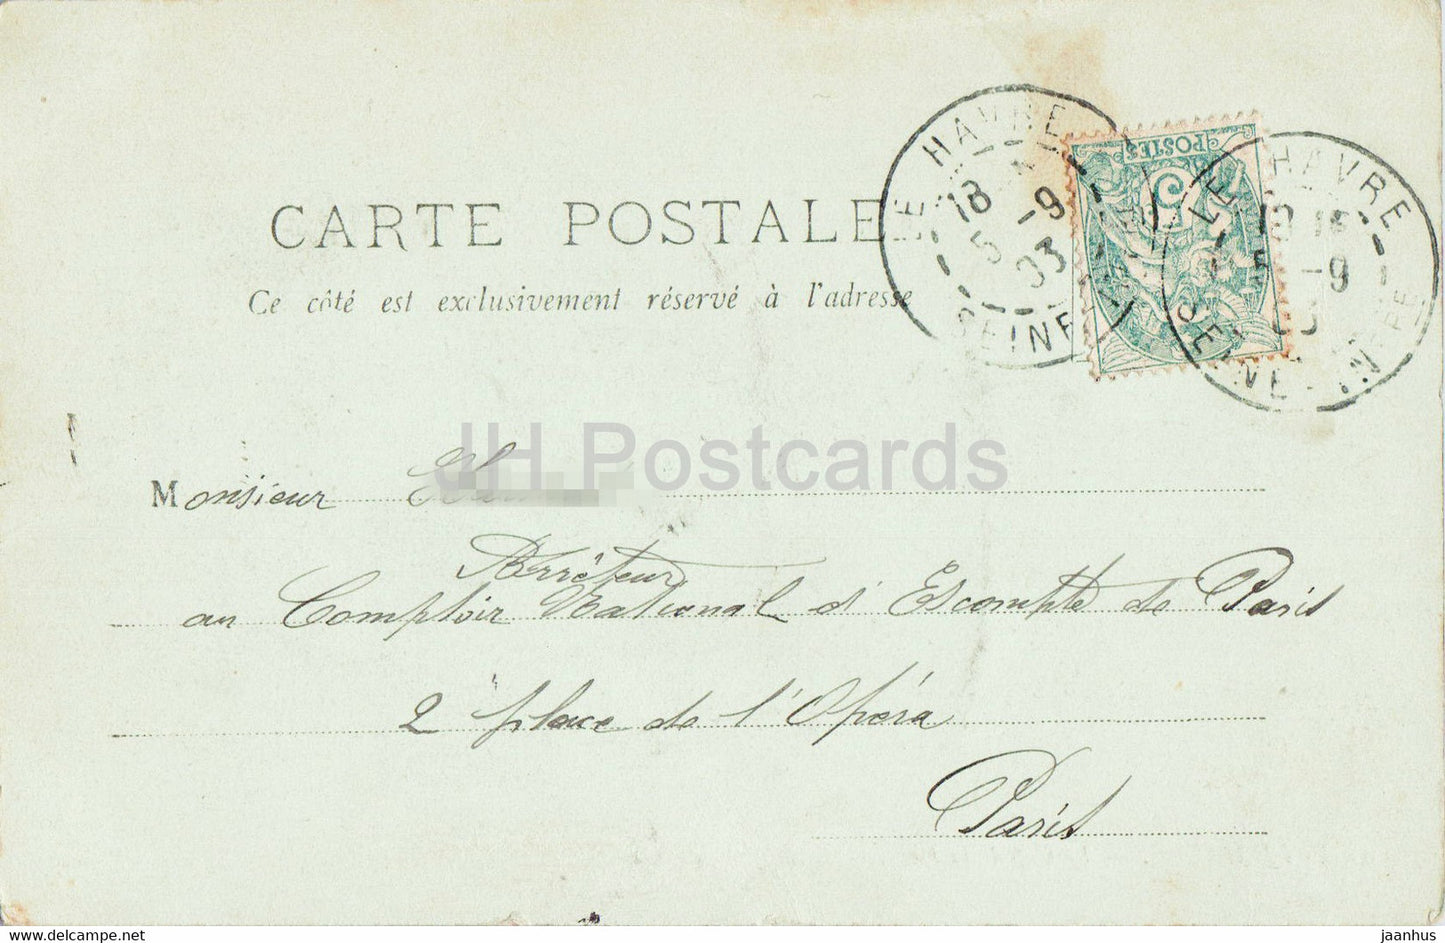 CARTE POSTALE
Ce côté est exclusivement réservé à l'adresse
LE HAVRE
18
5 -9
03
SEINE
POSTES
5
LE HAVRE
-9
SEINE-INFRE
JH Postcards
Monsieur
Arrêteur
au Comptoir National d'Escompte de Paris
2 place de l'Opéra
Paris
www.delcampe.net
jaanhus